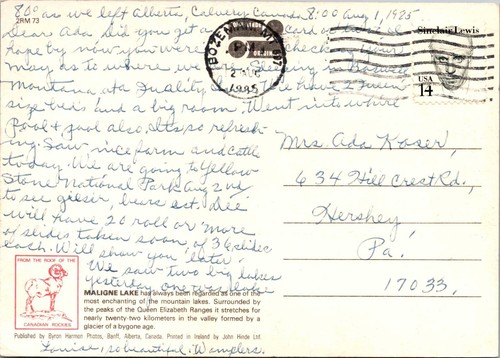 80° as we left Alberta, Calvery Canada 8:00 Aug 1, 1985
2RM 73
Dear Ada Did you get a card
hope by now your were checking your
map as to where we are. Sleeping in Bozeman
Montana at a Quality Inn. We have 2 Queen
size beds had a big room. Went into whirl
Pool & pool also. Its so refresh-
ing. Saw nice farm and cattle
today. We are going to Yellow
Stone National Park Aug 2nd
to see geisir, bears ect. Dee
will have 20 roll or more
of slides taken soon of 36 slides
each. Will show you later.
We saw two big lakes
yesterday one was Lake
FROM THE ROOF OF THE
CANADIAN ROCKIES
MALIGNE LAKE has always been regarded as one of the
most enchanting of the mountain lakes. Surrounded by
the peaks of the Queen Elizabeth Ranges it stretches for
nearly twenty-two kilometers in the valley formed by a
glacier of a bygone age.
Published by Byron Harmon Photos, Banff, Alberta, Canada. Printed in Ireland by John Hinde Ltd.
Louise, so beautiful. Wamplers.
BOZEMAN, MT 597
PM
2 AUG
1985
Sinclair Lewis
USA
14
Mrs. Ada Koser,
634 Hill Crest Rd.,
Hershey
Pa.
17033.